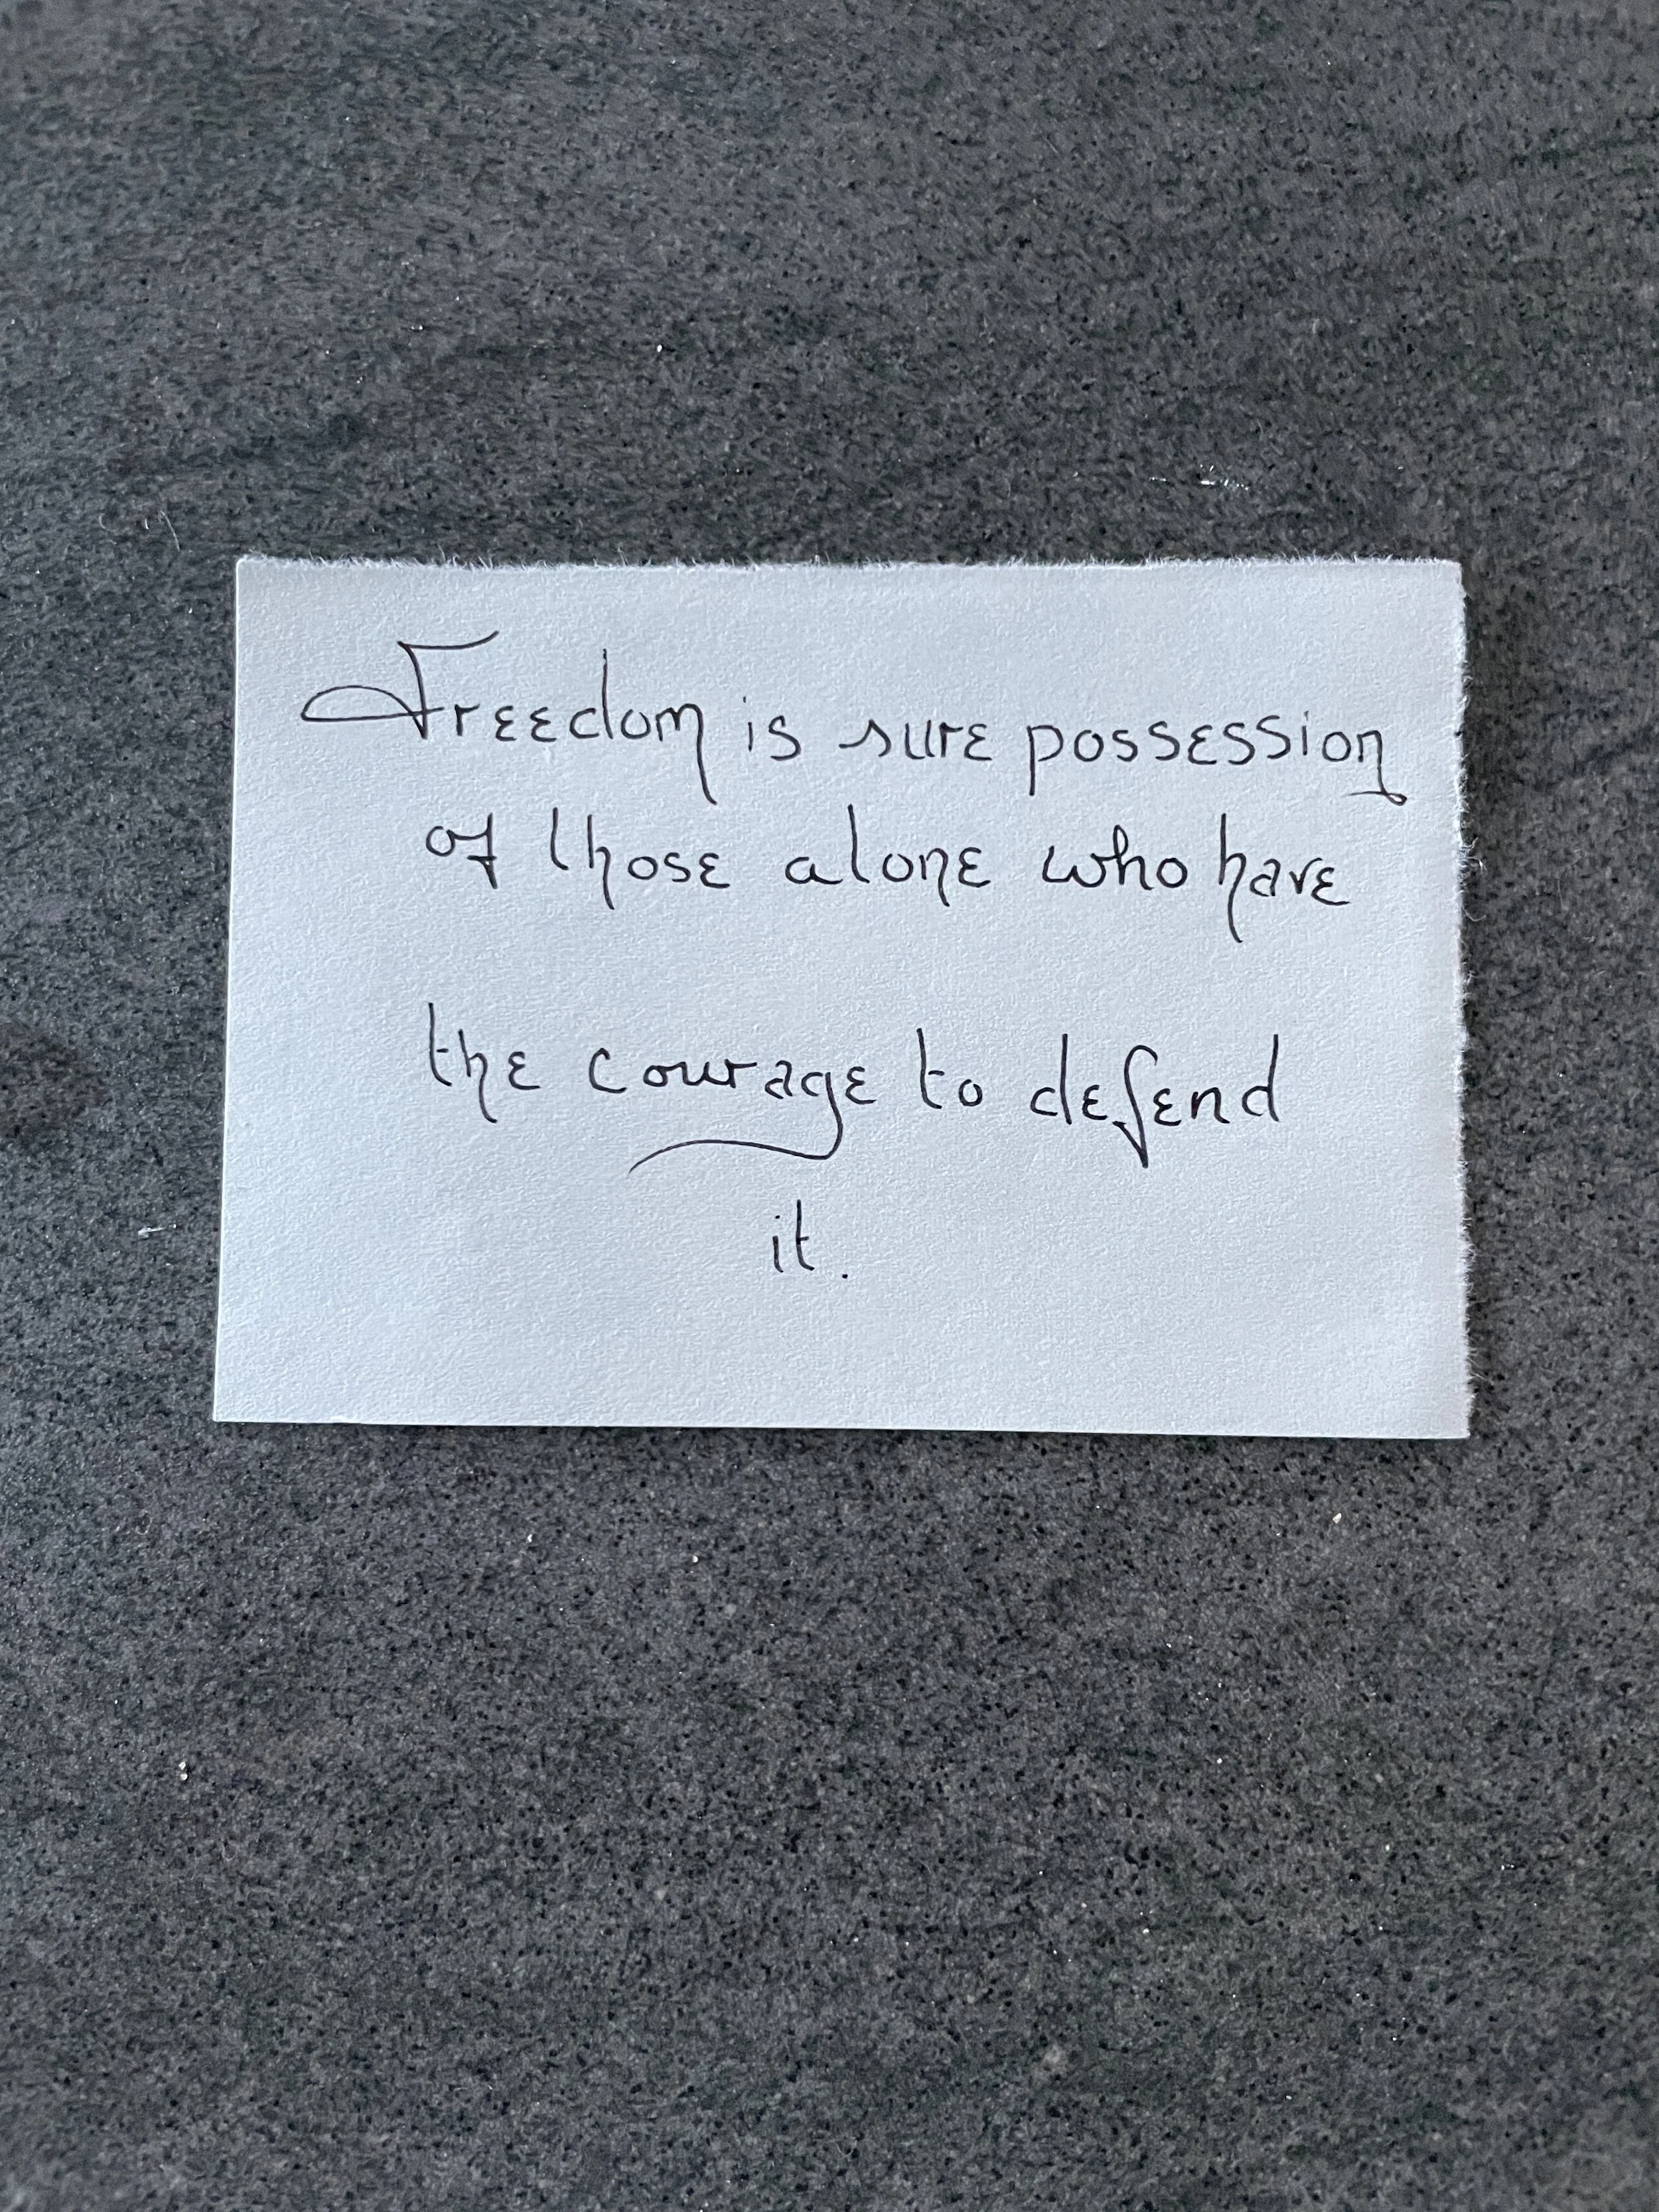 Freedom is sure possession
of those alone who have
the courage to defend
it.